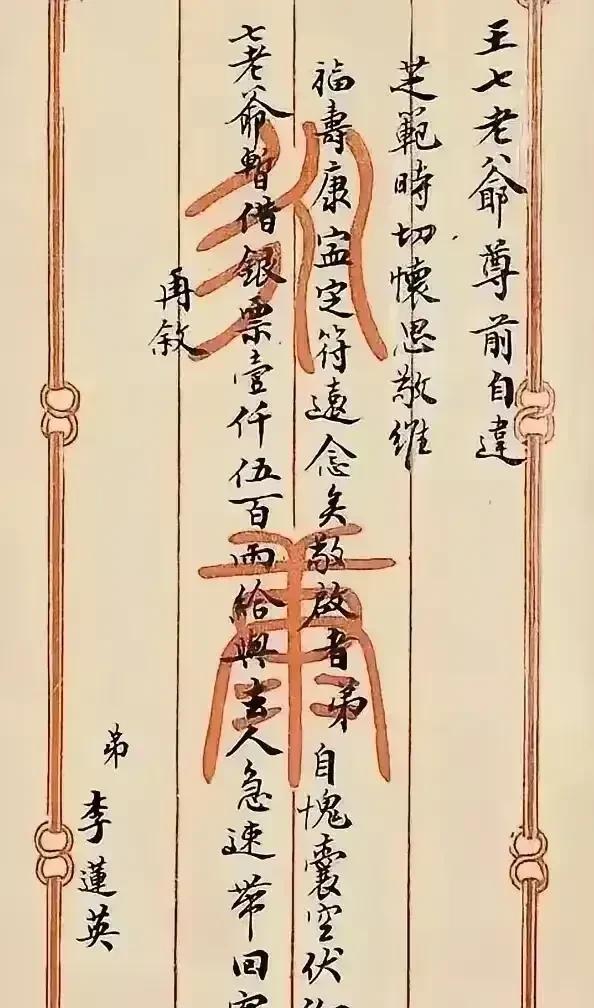 王七老爺尊前自違
芝範時切懷思敬維
福壽康寧定符遠念矣敬啟者弟自愧囊空伏
七老爺暫借銀票壹仟伍百兩給與去人急速帶回
再敘
弟李蓮英